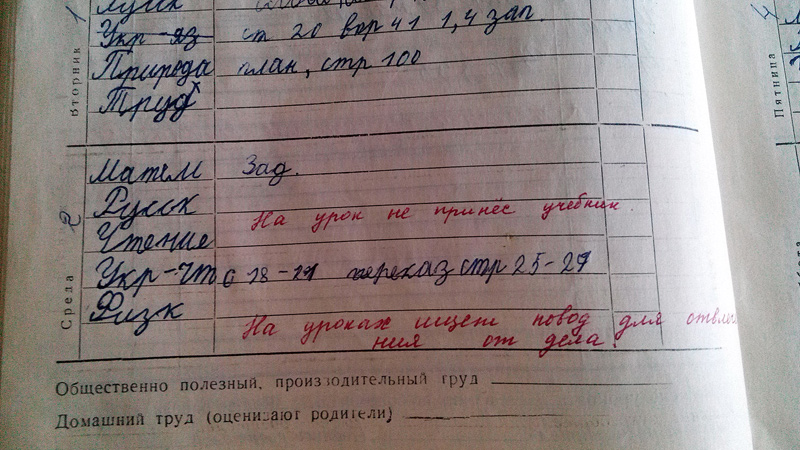 Русск
Укр-яз ст 20 впр 41 1,4 зап.
Природа план, стр 100
Труд
Вторник 1
Матем Зад.
Русск
На урок не принёс учебник.
Чтение
Укр-чт с 18-19 пересказ стр 25-27
Физк
На уроках ищет повод для отвлече
ния от дела.
Среда 2
Пятница
Общественно полезный, производительный труд
Домашний труд (оценивают родители)